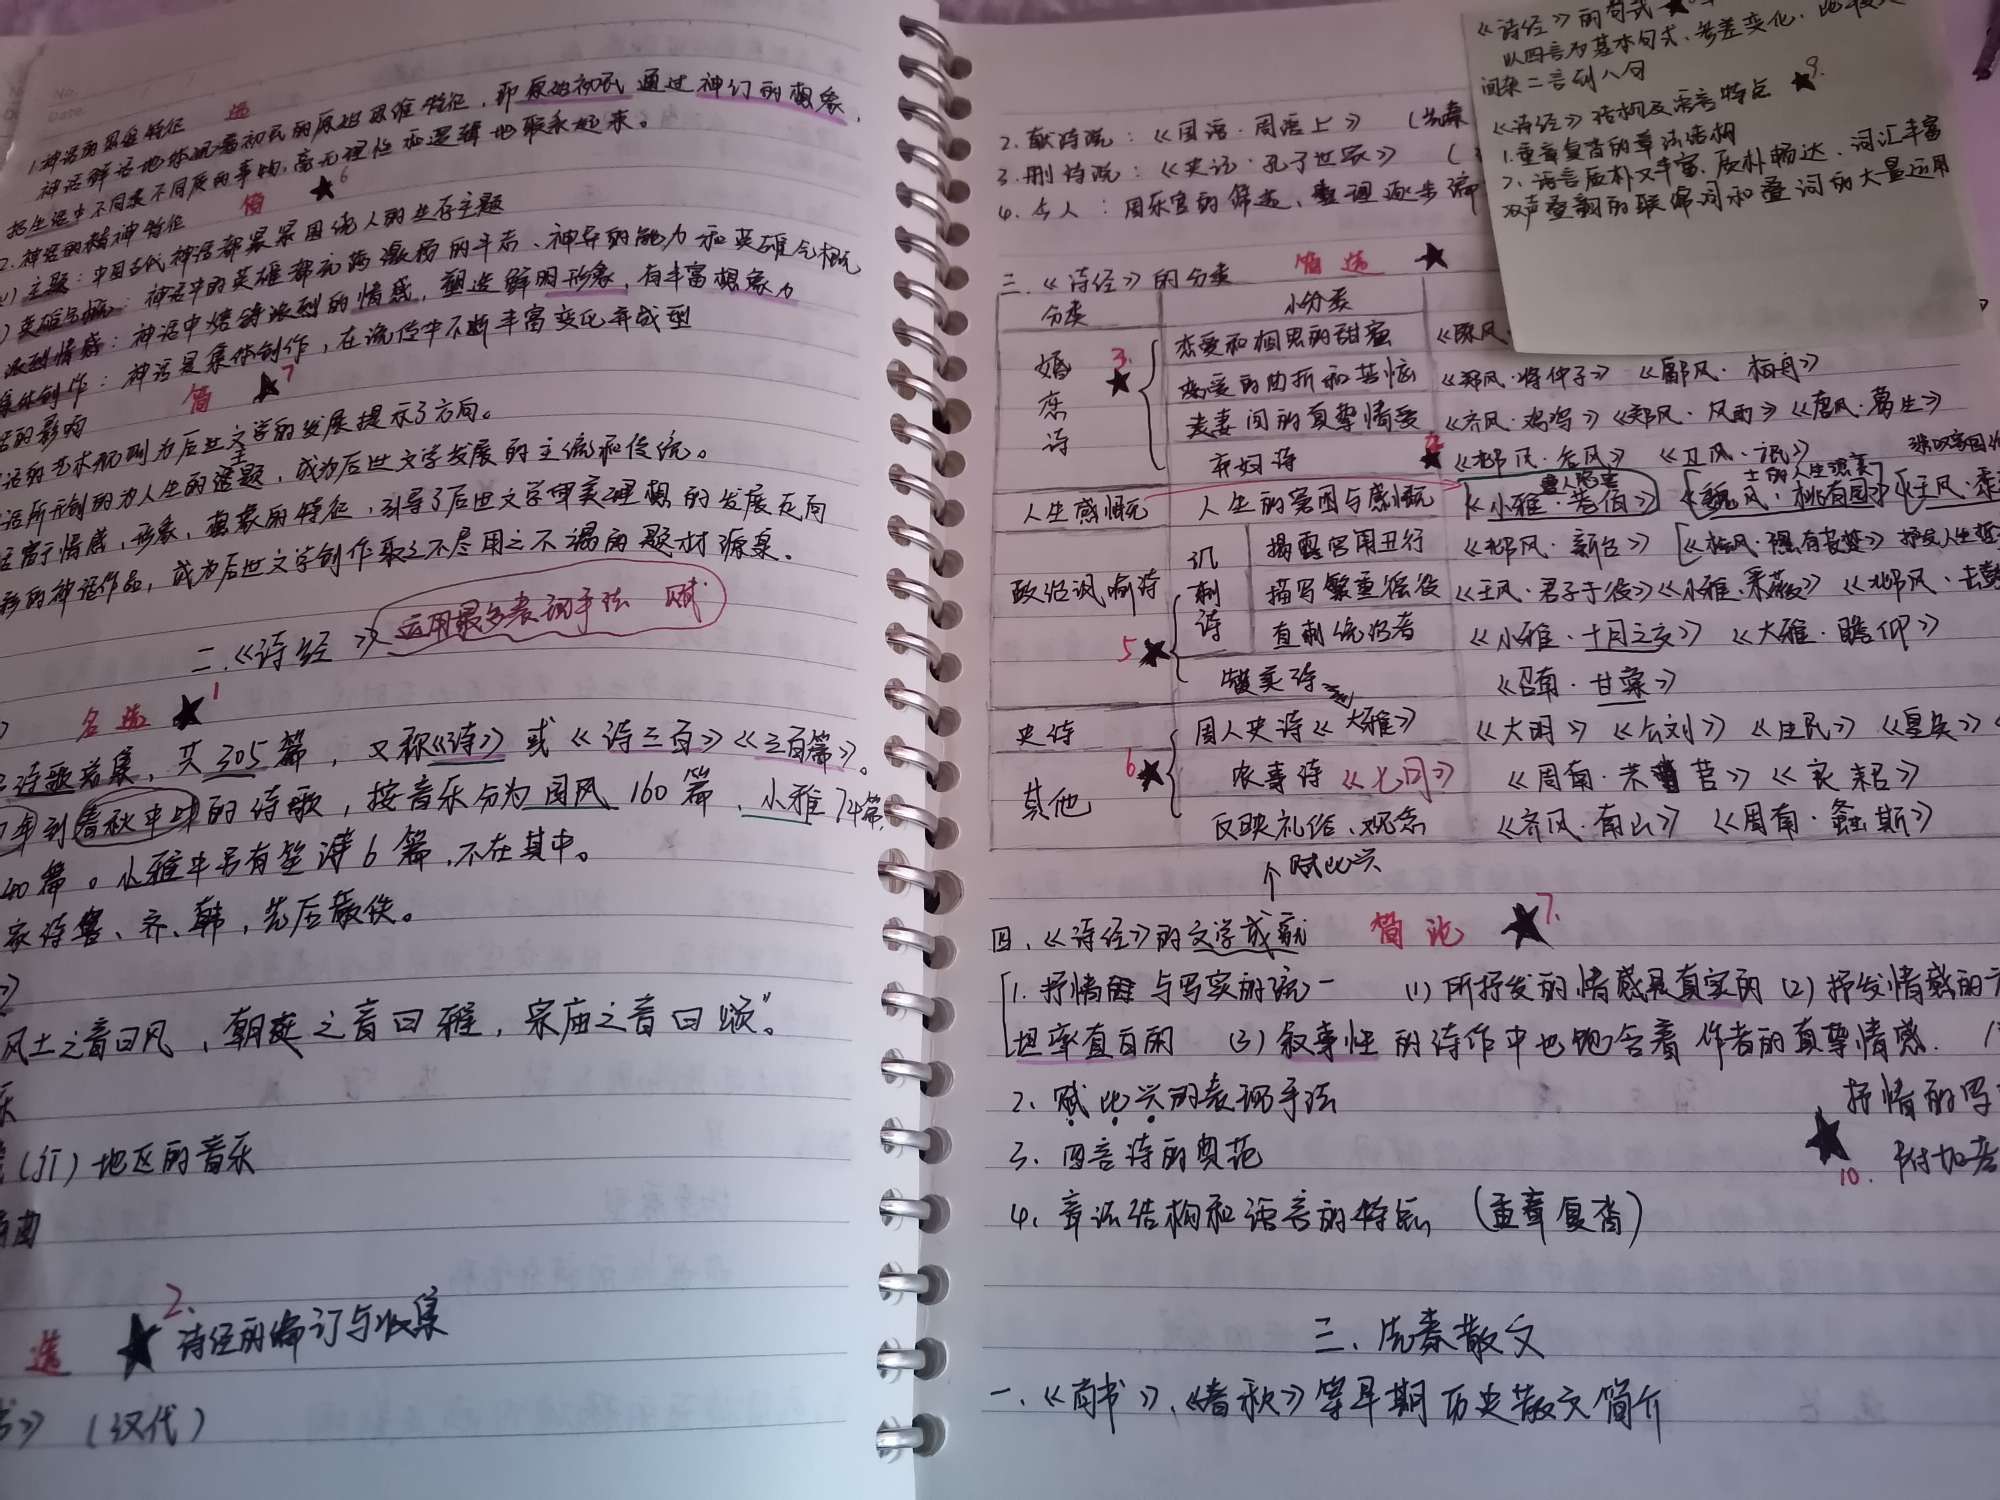 No.
Date.
1.神话的思维特征 选
神话鲜活地体现着初民的原始思维特征，即原始初民通过神幻的想象，
把生活中不同类不同质的事物，毫无理性和逻辑地联系起来。
2.神话的精神特征 简 ★6
(1)主题：中国古代神话都紧紧围绕人的生存主题
英雄气概：神话中的英雄都有昂激扬的斗志、神奇的能力和英雄气概
浓烈情感：神话中熔铸浓烈的情感，塑造鲜明形象，有丰富想象力
集体创作：神话是集体创作，在流传中不断丰富变化并成型
的影响 简 ★7
话的艺术 为后世文学的发展提示了方向。
话所开创的为人生的主题，成为后世文学发展的主流和传统。
富于情感，形象，想象的特征，引导了后世文学审美理想的发展方向
的神话作品，成为后世文学创作取之不尽用之不竭的题材源泉。
二.《诗经》 运用最多表现手法 赋
名选 ★1
诗歌总集，共305篇，又称《诗》或《诗三百》《三百篇》。
年到春秋中叶的诗歌，按音乐分为国风160篇、小雅74篇，
40篇。小雅中另有笙诗6篇，不在其中。
家诗鲁、齐、韩，先后散佚。
风土之音曰风，朝廷之音曰雅，宗庙之音曰颂。”
乐
地区的音乐
曲
选 ★2. 诗经的编订与收集
书》（汉代）
2.献诗说：《国语·周语上》（先秦
3.删诗说：《史记·孔子世家》（
4.今人：周乐官的筛选、整理逐步编
三.《诗经》的分类 简选 ★
分类 小分类
婚恋诗 3.★ 恋爱和相思的甜蜜 《陈风·
恋爱的曲折和苦恼 《郑风·将仲子》《鄘风·柏舟》
夫妻间的真挚情爱 《齐风·鸡鸣》《郑风·风雨》《唐风·葛生》
弃妇诗 ★《邶风·谷风》《卫风·氓》
人生感慨 人生的窘困与感慨 《小雅·巷伯》《魏风·园有桃》《王风·黍
政治讽喻诗 讽刺诗 揭露宫闱丑行 《邶风·新台》[《桧风·隰有苌楚》
描写繁重徭役 《王风·君子于役》《小雅·采薇》《邶风·击鼓
5★ 直刺统治者 《小雅·十月之交》《大雅·瞻卬》
赞美诗 《召南·甘棠》
史诗 周人史诗《大雅》 《大明》《公刘》《生民》《皇矣》
其他 6★ 农事诗《七月》 《周南·芣苢》《良耜》
反映礼俗、观念 《齐风·南山》《周南·螽斯》
↑赋比兴
四.《诗经》的文学成就 简论 ★7.
1.抒情 与写实的统一 (1)所抒发的情感是真实的(2)抒发情感的方
坦率直白的 (3)叙事性的诗作中也饱含着作者的真挚情感.
2.赋比兴的表现手法 抒情的写
3.四言诗的典范 ★10. 附加
4.章法结构和语言的特点（重章复沓）
三、先秦散文
一.《尚书》、《春秋》等早期历史散文简介
《诗经》的句式 ★
以四言为基本句式，参差变化，
间杂二言到八句
《诗经》结构及语言特点 ★9.
1.重章复沓的章法结构
2.语言质朴又丰富，质朴畅达、词汇丰富
双声叠韵的联绵词和叠词的大量运用